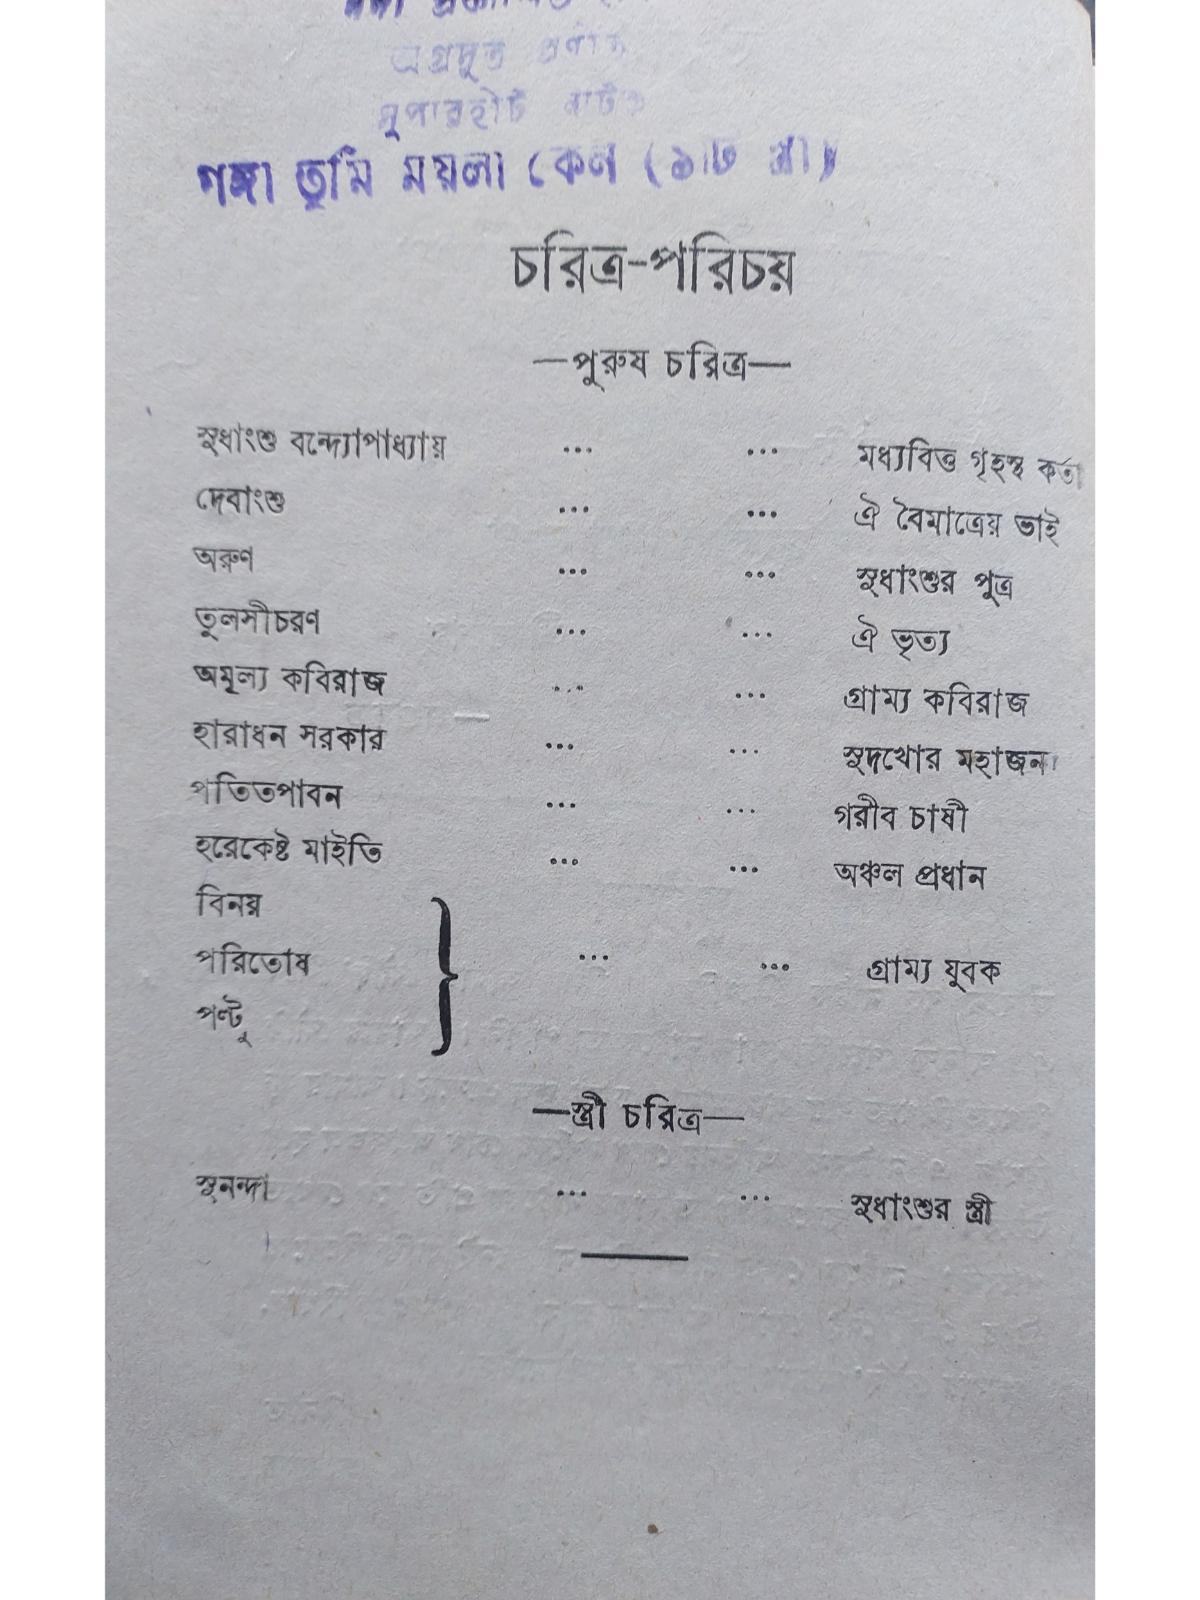 অগ্রদূত প্রণীত
সুপারহীট নাটক
গঙ্গা তুমি ময়লা কেন (১টি স্ত্রী)
চরিত্র-পরিচয়
—পুরুষ চরিত্র—
সুধাংশু বন্দ্যোপাধ্যায় ... ... মধ্যবিত্ত গৃহস্থ কর্তা
দেবাংশু ... ... ঐ বৈমাত্রেয় ভাই
অরুণ ... ... সুধাংশুর পুত্র
তুলসীচরণ ... ... ঐ ভৃত্য
অমূল্য কবিরাজ ... ... গ্রাম্য কবিরাজ
হারাধন সরকার ... ... সুদখোর মহাজন
পতিতপাবন ... ... গরীব চাষী
হরেকেষ্ট মাইতি ... ... অঞ্চল প্রধান
বিনয়
পরিতোষ } ... ... গ্রাম্য যুবক
পল্টু
—স্ত্রী চরিত্র—
সুনন্দা ... ... সুধাংশুর স্ত্রী